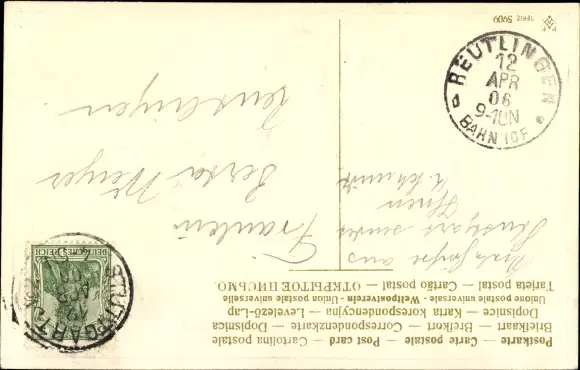 Postkarte — Carte postale — Post card — Cartolina postale
Briefkaart — Brefkort — Correspondenzkarte — Dopisnica
Dopisnice — Karta korespondencyjna — Levelező-Lap
Union postale universelle - Weltpostverein - Union postale universelle
Tarjeta postal — Cartão postal — ОТКРЫТОЕ ПИСЬМО
aus
Stuttgart sendet
Ihnen
Fräulein
Berta
Reutlingen
DEUTSCHES REICH
STUTTGART
12
APR
REUTLINGEN
12
APR
06
9-10N
BAHNHOF
SERIE 5909